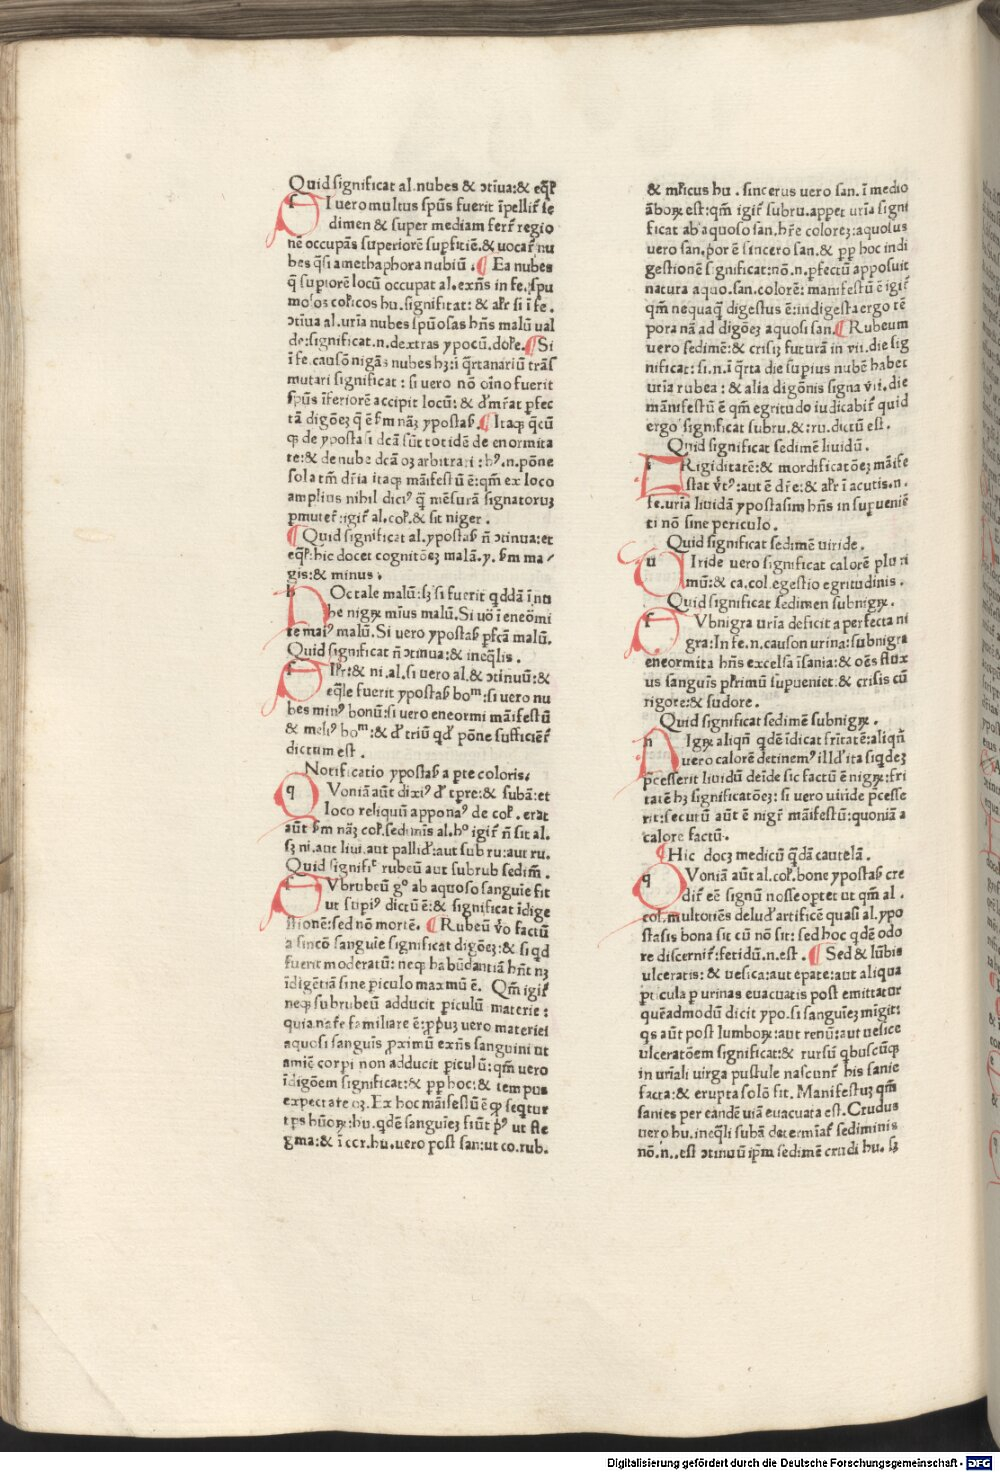 Quid significat al. nubes & ↄtīua:& eq̄l̄
SI uero multus spūs fuerit īpellit̄ se
dimen & super mediam fert̄ regio
nē occupās superiorē supficiē.& uocat̄ nu
bes q̄si a methaphora nubiū. ¶ Ea nubes
q̄ supiorē locū occupat al.exn̄s in fe. spu
significat: & apłr si ī fe.
ↄtiua al.urīa nubes spūosas hn̄s malū ual
¶ Si
ī fe.causōn nigās nubes hʒ:ī q̄rtanariū trās
mutari significat : si uero nō oīno fuerit
spūs īferiorē accipit locū: &
¶ Itaqʒ
te:& de nube dcā oʒ arbitrari : hꝰ.n.pōne
sola tm̄ dr̄ia itaqʒ māifestū ē:qm̄ ex loco
amplius nihil dicit q̄ mēsurā signatoruʒ
pmutet̄:igit̄ al.col̄.& sit niger .
¶ Quid significat al.ypostas̄ n̄ ↄtinua:et
eql̄:hic docet cognitōeʒ malā.y. s̄m ma⸗
gis:& minus .
hOc tale malū:sʒ si fuerit qddā ī nu
be nigrꝝ mīus malū.Si uō ī eneōmi
te maiꝰ malū.Si uero ypostas̄ pfcā malū.
Quid significat n̄ ↄtinua:& ineq̄lis .
& ni.al.si uero al.& ↄtinuū:&
eq̄le fuerit ypostas̄ boᵐ:si uero nu
bes minꝰ bonū:si uero eneormi māifestū
& meliꝰ boᵐ:& d' triū qd' pōne sufficiēt̄
dictum est .
Notificatio ypostas̄ a pte coloris.
qVoniā aūt dixiꝰ d' tpre:& subā:et
loco reliquū apponaꝰ de col̄. erat
aūt s̄m nāʒ col̄.sedimīs al.hº igit̄ n̄ sit al.
sʒ ni.aut liui.aut pallid':aut sub ru:aut ru.
Quid signifiᶜ rubeū aut subrub sedim̄.
fVbrubeū gº ab aquoso sanguīe fit
ut supiꝰ dictū ē:& significat īdige
stionē:sed nō mortē. ¶ Rubeū v̄o factū
a sincō sanguīe significat digōeʒ:& si qd
fuerit moderatū: neqʒ habūdantiā hn̄t nʒ
īdigētiā sine piculo maxmū ē. Qm̄ igit̄
neqʒ subrubeū adducit piculū materie:
quia nat̄e familiare ē:ppuʒ uero materiei
aquosi sanguīs proximū exn̄s sanguini ut
amīc̄ corpi non adducit piculū:qm̄ uero
īdigōem significat:& pp hoc:& tempus
expectare oʒ.Ex hoc māifestū ē qʒ seqt̄ur
tps hūoꝝ:hu.qdē sanguīeʒ fiūt pꝰ ut fle
gma:& ī ccr.hu.uero post san:ut co.rub.
& mr̄icus hu . sincerus uero san.ī medio
āboꝝ est:qm̄ igit̄ subru.appet urīa signi
ficat ab aquoso san.hr̄e coloreʒ:aquosus
uero san.por ē sincero san.& pp hoc indi
gestionē significat:nō.n.pfectū apposuit
natura aquo.san.colorē: manifestū ē igit̄
qm̄ nequaqʒ digestus ē:indigesta ergo tē
pora nā ad digōeʒ aquosi san. ¶ Rubeum
uero sedimē:& crisiʒ futurā in vii.die sig
nificat:si.n.ī q̄rta die supius nubē habet
urīa rubea : & alia digōnis signa vii.die
mānifestū ē qm̄ egritudo iudicabit̄ quid
ergo significat subru.&:ru.dictū est .
Quid significat sedimē liuidū .
fRigiditatē:& mordificatōeʒ māife
stat v̄tꝰ:aut ē dr̄e:& apłr ī acutis.n.
fe.urīa liuidā ypostasim hn̄s in supueniē
ti nō sine periculo .
Quid significat sedimē uiride .
uIride uero significat calorē pluri
mū:& ca.col.egestio egritudinis .
Quid significat sedimen subnigrꝝ .
fVbnigra urīa deficit a perfecta ni
gra:In fe.n.causon urina:subnigra
eneormita hn̄s excelsa īsania:& oēs flux
us sanguīs plrimū supueniet & crisis cū
rigore:& sudore .
Quid significat sedimē subnigrꝝ .
nIgrꝝ aliqn̄ qdē īdicat frītatē:aliqn̄
uero calorē detinemꝰ illd' ita siqdeʒ
pcesserit liuidū deīde sic factū ē nigrꝝ:fri
tatē hʒ significatōeʒ: si uero uiride pcesse
rit:secutū aūt ē nigr̄ māifestū:quoniā a
calore factū.
¶ Hic doceʒ medicū qdā cautelā .
qVoniā aūt al.col̄.bone ypostas̄ cre
dit̄ eē signū nosse optet ut qm̄ al.
col.multotiēns delud' artificē quasi al.ypo
stasis bona sit cū nō sit: sed hoc qdē odo
re discernit̄:fetidū.n.est . ¶ Sed & lūbis
ulceratis: & uesica:aut epate:aut aliqua
pticula p urinas euacuatis post emittatur
quēadmodū dicit ypo.si sanguīeʒ mīgit:
qs aūt post lumboꝝ:aut renū:aut uesice
ulceratōem significat:& rursū qbuscūqʒ
in urīali uirga pustule nascunt̄ his sanie
facta:& erupta solō fit. Manifestuʒ qm̄
sanies per eandē uiā euacuata est.Crudus
uero hu.ineq̄li subā determīat̄ sediminis
nō.n..est ↄtinuū ipm̄ sedimē crudi hu. sʒ
Digitalisierung gefördert durch die Deutsche Forschungsgemeinschaft - DFG